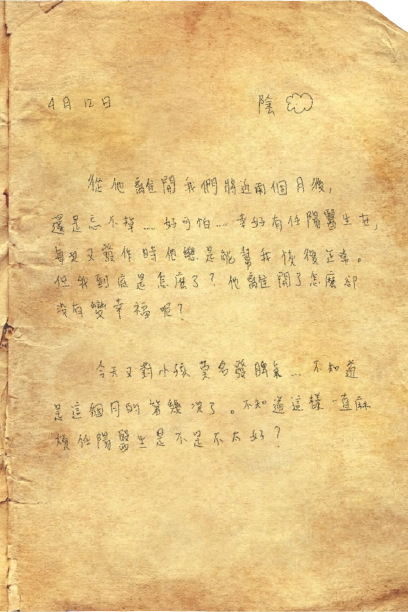 4月12日 陰
從他離開我們將近兩個月後，
還是忘不掉....好可怕....幸好有任陽醫生在，
每次又發作時他總是能幫我恢復正常。
但我到底是怎麼了？他離開了怎麼卻
沒有變幸福呢？
今天又對小孩莫名發脾氣...不知道
是這個月的第幾次了。不知道這樣一直麻
煩任陽醫生是不是不太好？